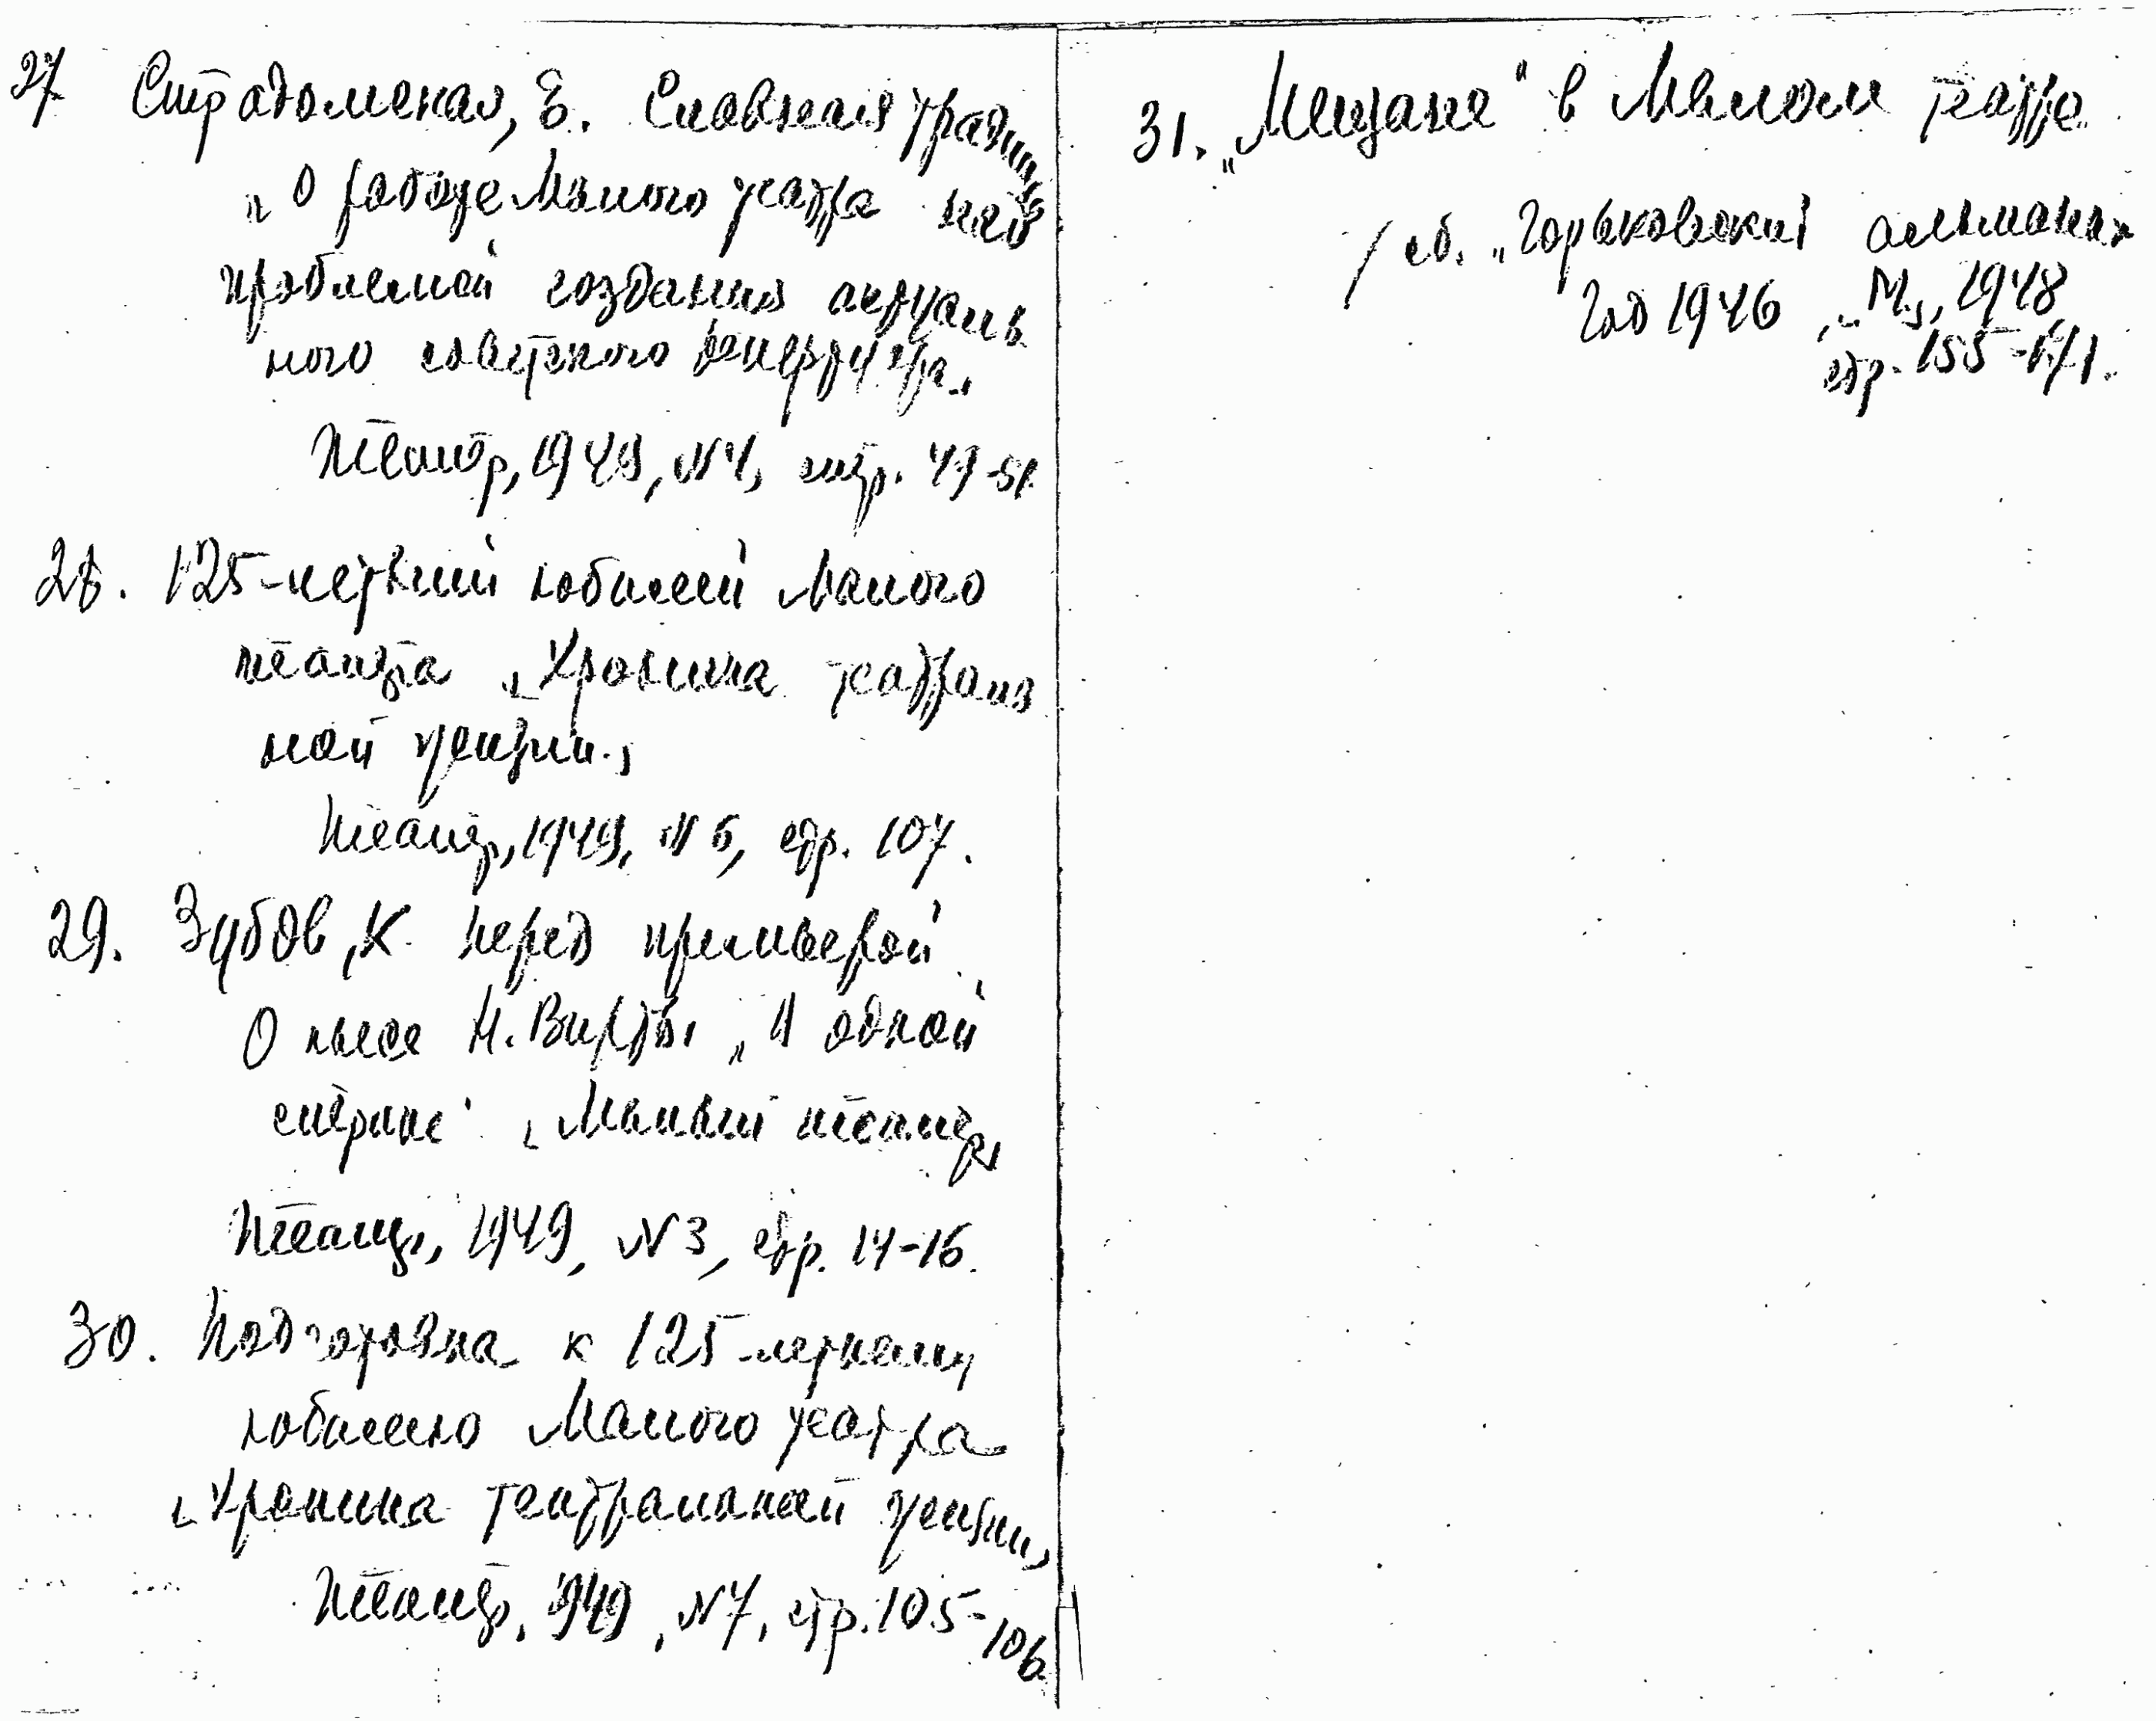 27 Страдомская, Е. Славная традиция
„О работе Малого театра над
проблемой создания актуаль
ного советского репертуара.,
Театр, 1949, N4, стр. 49-51.
28. 125-летний юбилей Малого
театра „Хроника театраль
ной жизни.,
Театр, 1949, N 6, стр. 107.
29. Зубов, К. Перед премьерой.
О пьесе Н. Вирты „В одной
стране" „Малый театр,
Театр, 1949, N3, стр. 14-16.
30. Подготовка к 125-летнему
юбилею Малого театра
„Хроника театральной жизни,
Театр, 1949, N7, стр. 105-106
31. „Мещане" в Малом театре.
/ сб. „Горьковский альманах
Год 1946 „ М., 1948,
стр. 155-171.